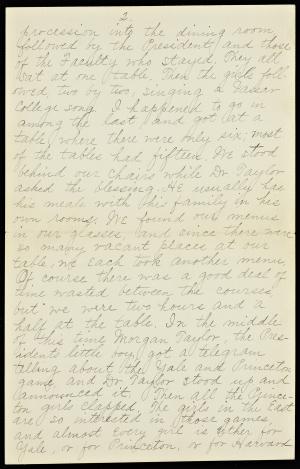 2.
procession into the dining room
followed by the President and those
of the Faculty who stayed. They all
sat at one table. Then the girls foll-
owed two by two, singing a Vassar
College song. I happened to go in
among the last and got at a
table where there were only six; most
of the tables had fifteen. We stood
behind our chairs while Dr Taylor
asked the blessing. He usually has
his meals with his family in his
own rooms. We found our menus
in our glasses, and since there were
so many vacant places at our
table, we each took another menu.
Of course there was a good deal of
time wasted between the courses
but we were two hours and a
half at the table. In the middle
of this time Morgan Taylor, the Pres-
idents little boy, got a telegram
telling about the Yale and Princeton
game and Dr Taylor stood up and
announced it. Then all the Prince-
ton girls clapped. The girls in the East
are so interested in those games
and almost every girl is either for
Yale, or for Princeton, or for Harvard